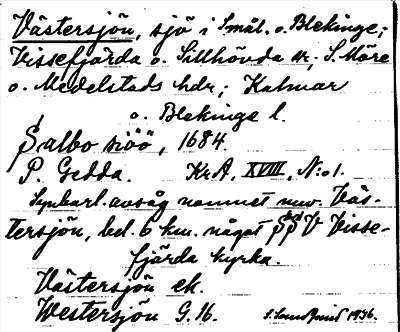 Västersjön, sjö i Smål. o. Blekinge;
Vissefjärda o. Sillhövda sr; S. Möre
o. Medelstads hdr; Kalmar
o. Blekinge l.
Salbo siöö, 1684.
P. Gedda. KrA, XVIII, N:o 1.
Synbarl. avsåg namnet nuv. Väs-
tersjön, bel. 6 km. något V Visse-
fjärda kyrka.
Västersjön ek.
Westersjön G. 16.
1936.